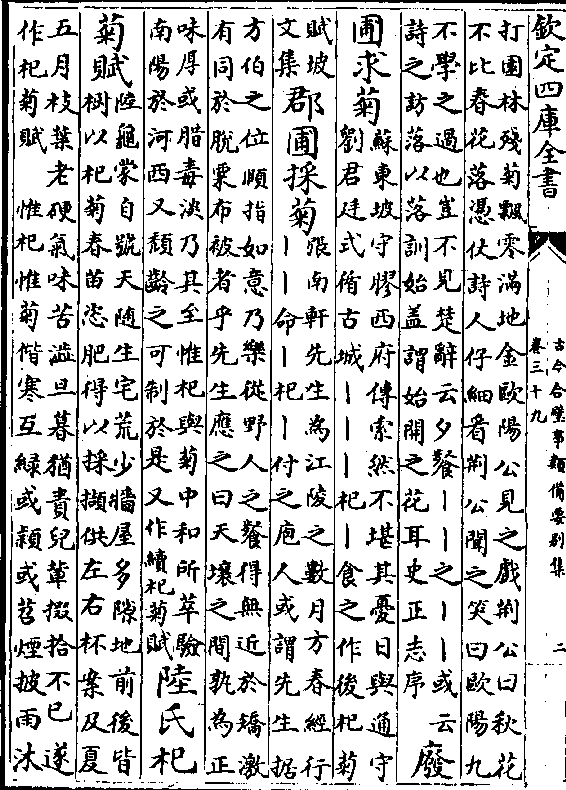 欽定四庫全書
古今合璧事類備要别集
卷三十九
二
打園林殘菊飄零滿地金歐陽公見之戯荆公曰秋花
不比春花落憑仗詩人仔細看荆公聞之笑曰歐陽九
不學之過也豈不見楚辭云夕餐丨丨之丨丨或云
詩之訪落以落訓始盖謂始開之花耳史正志序
廢
圃求菊
蘇東坡守膠西府傳索然不堪其憂日與通守
劉君廷式循古城丨丨丨杞丨食之作後杞菊
賦坡
文集
郡圃採菊
張南軒先生為江陵之數月方春經行
丨丨命丨杞丨付之庖人或謂先生据
方伯之位頤指如意乃樂從野人之餐得無近於矯激
有同於脱粟布被者乎先生應之曰天壤之間孰為正
味厚或腊毒淡乃其至惟杞與菊中和所萃驗
南陽於河西又頽齡之可制於是又作續杞菊賦
陸氏杞
菊賦
陸龜蒙自號天随生宅荒少牆屋多隙地前後皆
樹以杞菊春苗恣肥得以採擷供左右杯案及夏
五月枝葉老硬氣味苦澁旦暮猶責兒輩掇拾不已遂
作杞菊賦 惟杞惟菊偕寒互緑或潁或苕煙披雨沐